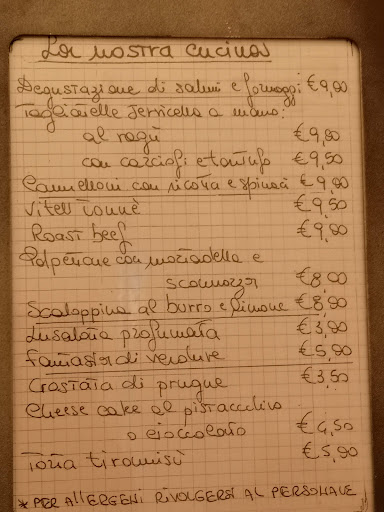 La nostra cucina
Degustazione di salumi e formaggi €9,00
Tagliatelle tirate a mano:
al ragù €9,00
con carciofi e tartufo €9,50
Cannelloni con ricotta e spinaci €9,00
Vitell tonnè €9,50
Roast beef €9,00
Polpettone con mortadella e
scamorza €8,00
Scaloppina al burro e limone €8,00
Insalata profumata €3,90
Fantasia di verdure €5,90
Crostata di prugne €3,50
Cheese cake al pistacchio
o cioccolato €4,50
Torta tiramisù €5,90
* PER ALLERGENI RIVOLGERSI AL PERSONALE